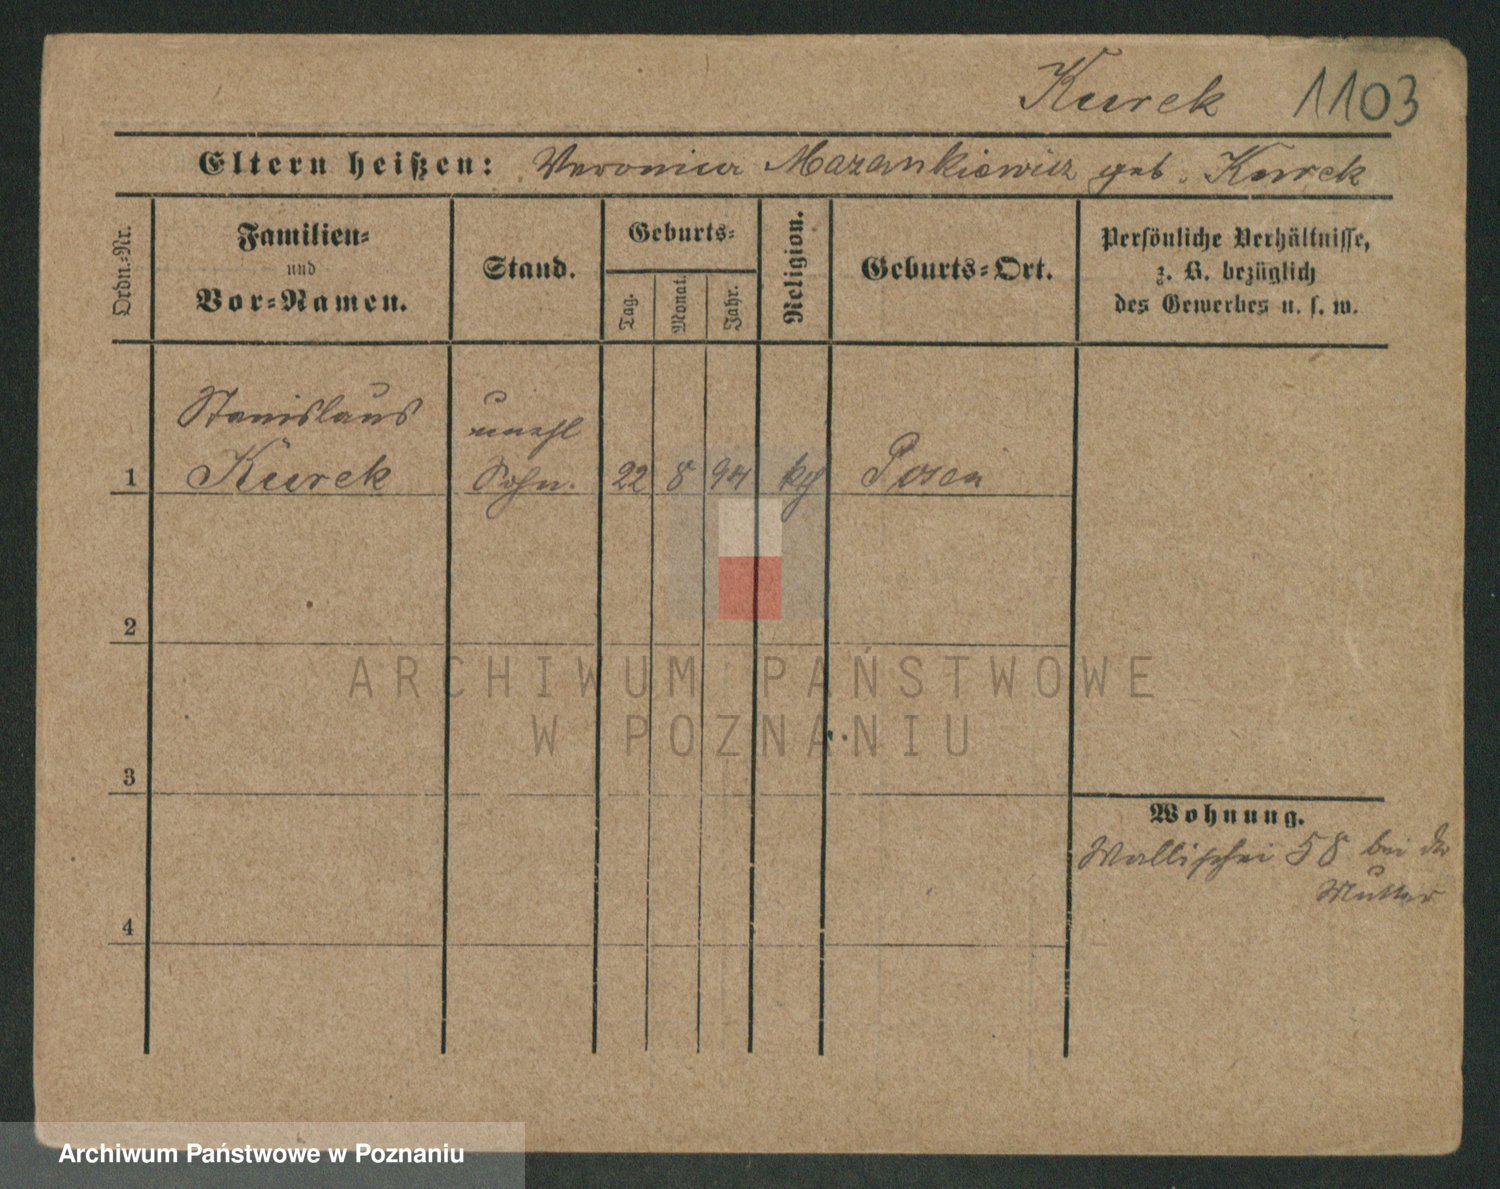 Kurek 1103
Eltern heißen: Veronica Mazankiewicz geb. Kurek
Ordn.-Nr.
Familien-
und
Vor-Namen.
Stand.
Geburts-
Tag.
Monat.
Jahr.
Religion.
Geburts-Ort.
Persönliche Verhältnisse,
z. B. bezüglich
des Gewerbes u. s. w.
Stanislaus
Kurek
unehl
Sohn.
1
22 8 94 kth Posen
2
3
4
Wohnung.
Wallischei 58 bei der
Mutter
ARCHIWUM PAŃSTWOWE
W POZNANIU
Archiwum Państwowe w Poznaniu